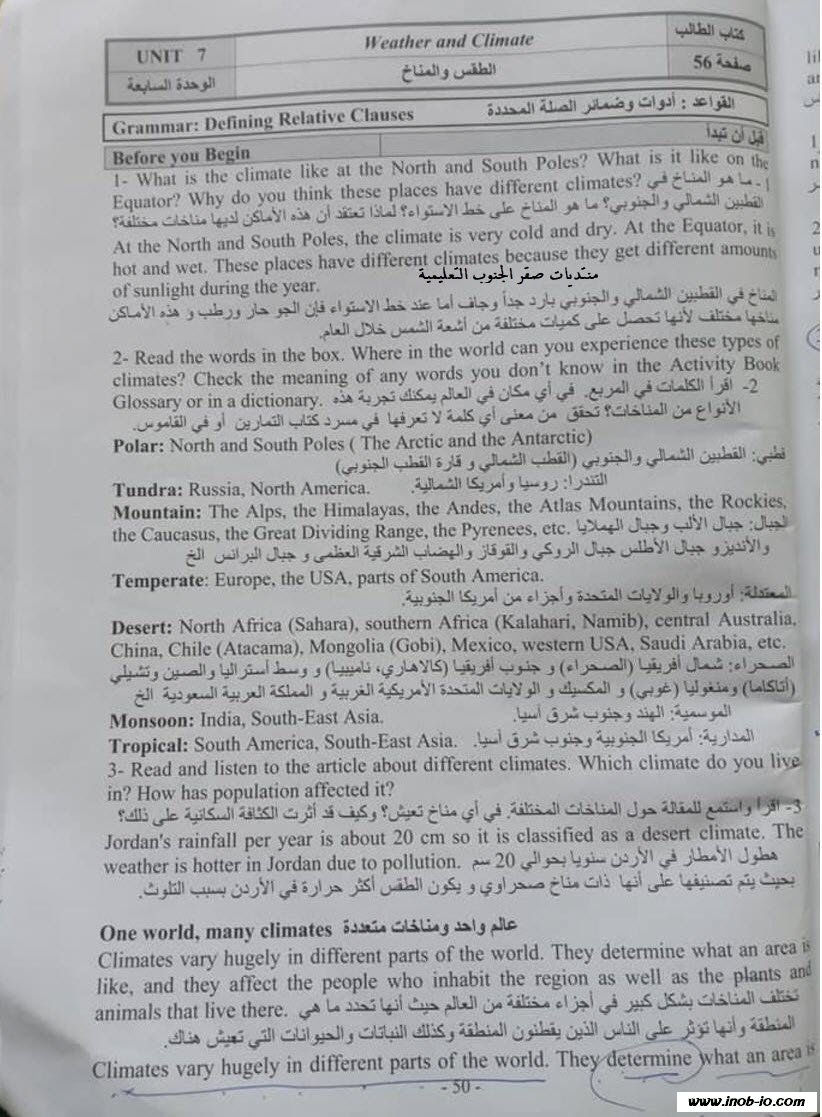 UNIT 7
Weather and Climate
كتاب الطالب
الوحدة السابعة
الطقس والمناخ
صفحة 56
Grammar: Defining Relative Clauses القواعد : أدوات وضمائر الصلة المحددة
Before you Begin قبل أن تبدأ
1- What is the climate like at the North and South Poles? What is it like on the
Equator? Why do you think these places have different climates? 1- ما هو المناخ في
القطبين الشمالي والجنوبي؟ ما هو المناخ على خط الاستواء؟ لماذا تعتقد أن هذه الأماكن لديها مناخات مختلفة؟
At the North and South Poles, the climate is very cold and dry. At the Equator, it is
hot and wet. These places have different climates because they get different amounts
of sunlight during the year. منتديات صقر الجنوب التعليمية
المناخ في القطبين الشمالي والجنوبي بارد جداً وجاف أما عند خط الاستواء فإن الجو حار ورطب و هذه الأماكن
مناخها مختلف لأنها تحصل على كميات مختلفة من أشعة الشمس خلال العام.
2- Read the words in the box. Where in the world can you experience these types of
climates? Check the meaning of any words you don't know in the Activity Book
Glossary or in a dictionary. 2- اقرأ الكلمات في المربع. في أي مكان في العالم يمكنك تجربة هذه
الأنواع من المناخات؟ تحقق من معنى أي كلمة لا تعرفها في مسرد كتاب التمارين أو في القاموس.
Polar: North and South Poles ( The Arctic and the Antarctic)
قطبي: القطبين الشمالي والجنوبي (القطب الشمالي و قارة القطب الجنوبي)
Tundra: Russia, North America. التندرا: روسيا وأمريكا الشمالية.
Mountain: The Alps, the Himalayas, the Andes, the Atlas Mountains, the Rockies,
the Caucasus, the Great Dividing Range, the Pyrenees, etc. الجبال: جبال الألب وجبال الهملايا
والأنديزو جبال الأطلس جبال الروكي والقوقاز والهضاب الشرقية العظمى و جبال البرانس الخ
Temperate: Europe, the USA, parts of South America.
المعتدلة: أوروبا والولايات المتحدة وأجزاء من أمريكا الجنوبية.
Desert: North Africa (Sahara), southern Africa (Kalahari, Namib), central Australia,
China, Chile (Atacama), Mongolia (Gobi), Mexico, western USA, Saudi Arabia, etc.
الصحراء: شمال أفريقيا (الصحراء) و جنوب أفريقيا (كالاهاري، ناميبيا) و وسط أستراليا والصين وتشيلي
(أتاكاما) ومنغوليا (غوبي) و المكسيك و الولايات المتحدة الأمريكية الغربية و المملكة العربية السعودية الخ
Monsoon: India, South-East Asia. الموسمية: الهند وجنوب شرق آسيا.
Tropical: South America, South-East Asia. المدارية: أمريكا الجنوبية وجنوب شرق آسيا.
3- Read and listen to the article about different climates. Which climate do you live
in? How has population affected it?
3- اقرأ واستمع للمقالة حول المناخات المختلفة. في أي مناخ تعيش؟ وكيف قد أثرت الكثافة السكانية على ذلك؟
Jordan's rainfall per year is about 20 cm so it is classified as a desert climate. The
weather is hotter in Jordan due to pollution. هطول الأمطار في الأردن سنويا بحوالي 20 سم
بحيث يتم تصنيفها على أنها ذات مناخ صحراوي و يكون الطقس أكثر حرارة في الأردن بسبب التلوث.
One world, many climates عالم واحد ومناخات متعددة
Climates vary hugely in different parts of the world. They determine what an area is
like, and they affect the people who inhabit the region as well as the plants and
animals that live there. تختلف المناخات بشكل كبير في أجزاء مختلفة من العالم حيث أنها تحدد ما هي
المنطقة وأنها تؤثر على الناس الذين يقطنون المنطقة وكذلك النباتات والحيوانات التي تعيش هناك.
Climates vary hugely in different parts of the world. They determine what an area is
- 50 -
www.inob-io.com